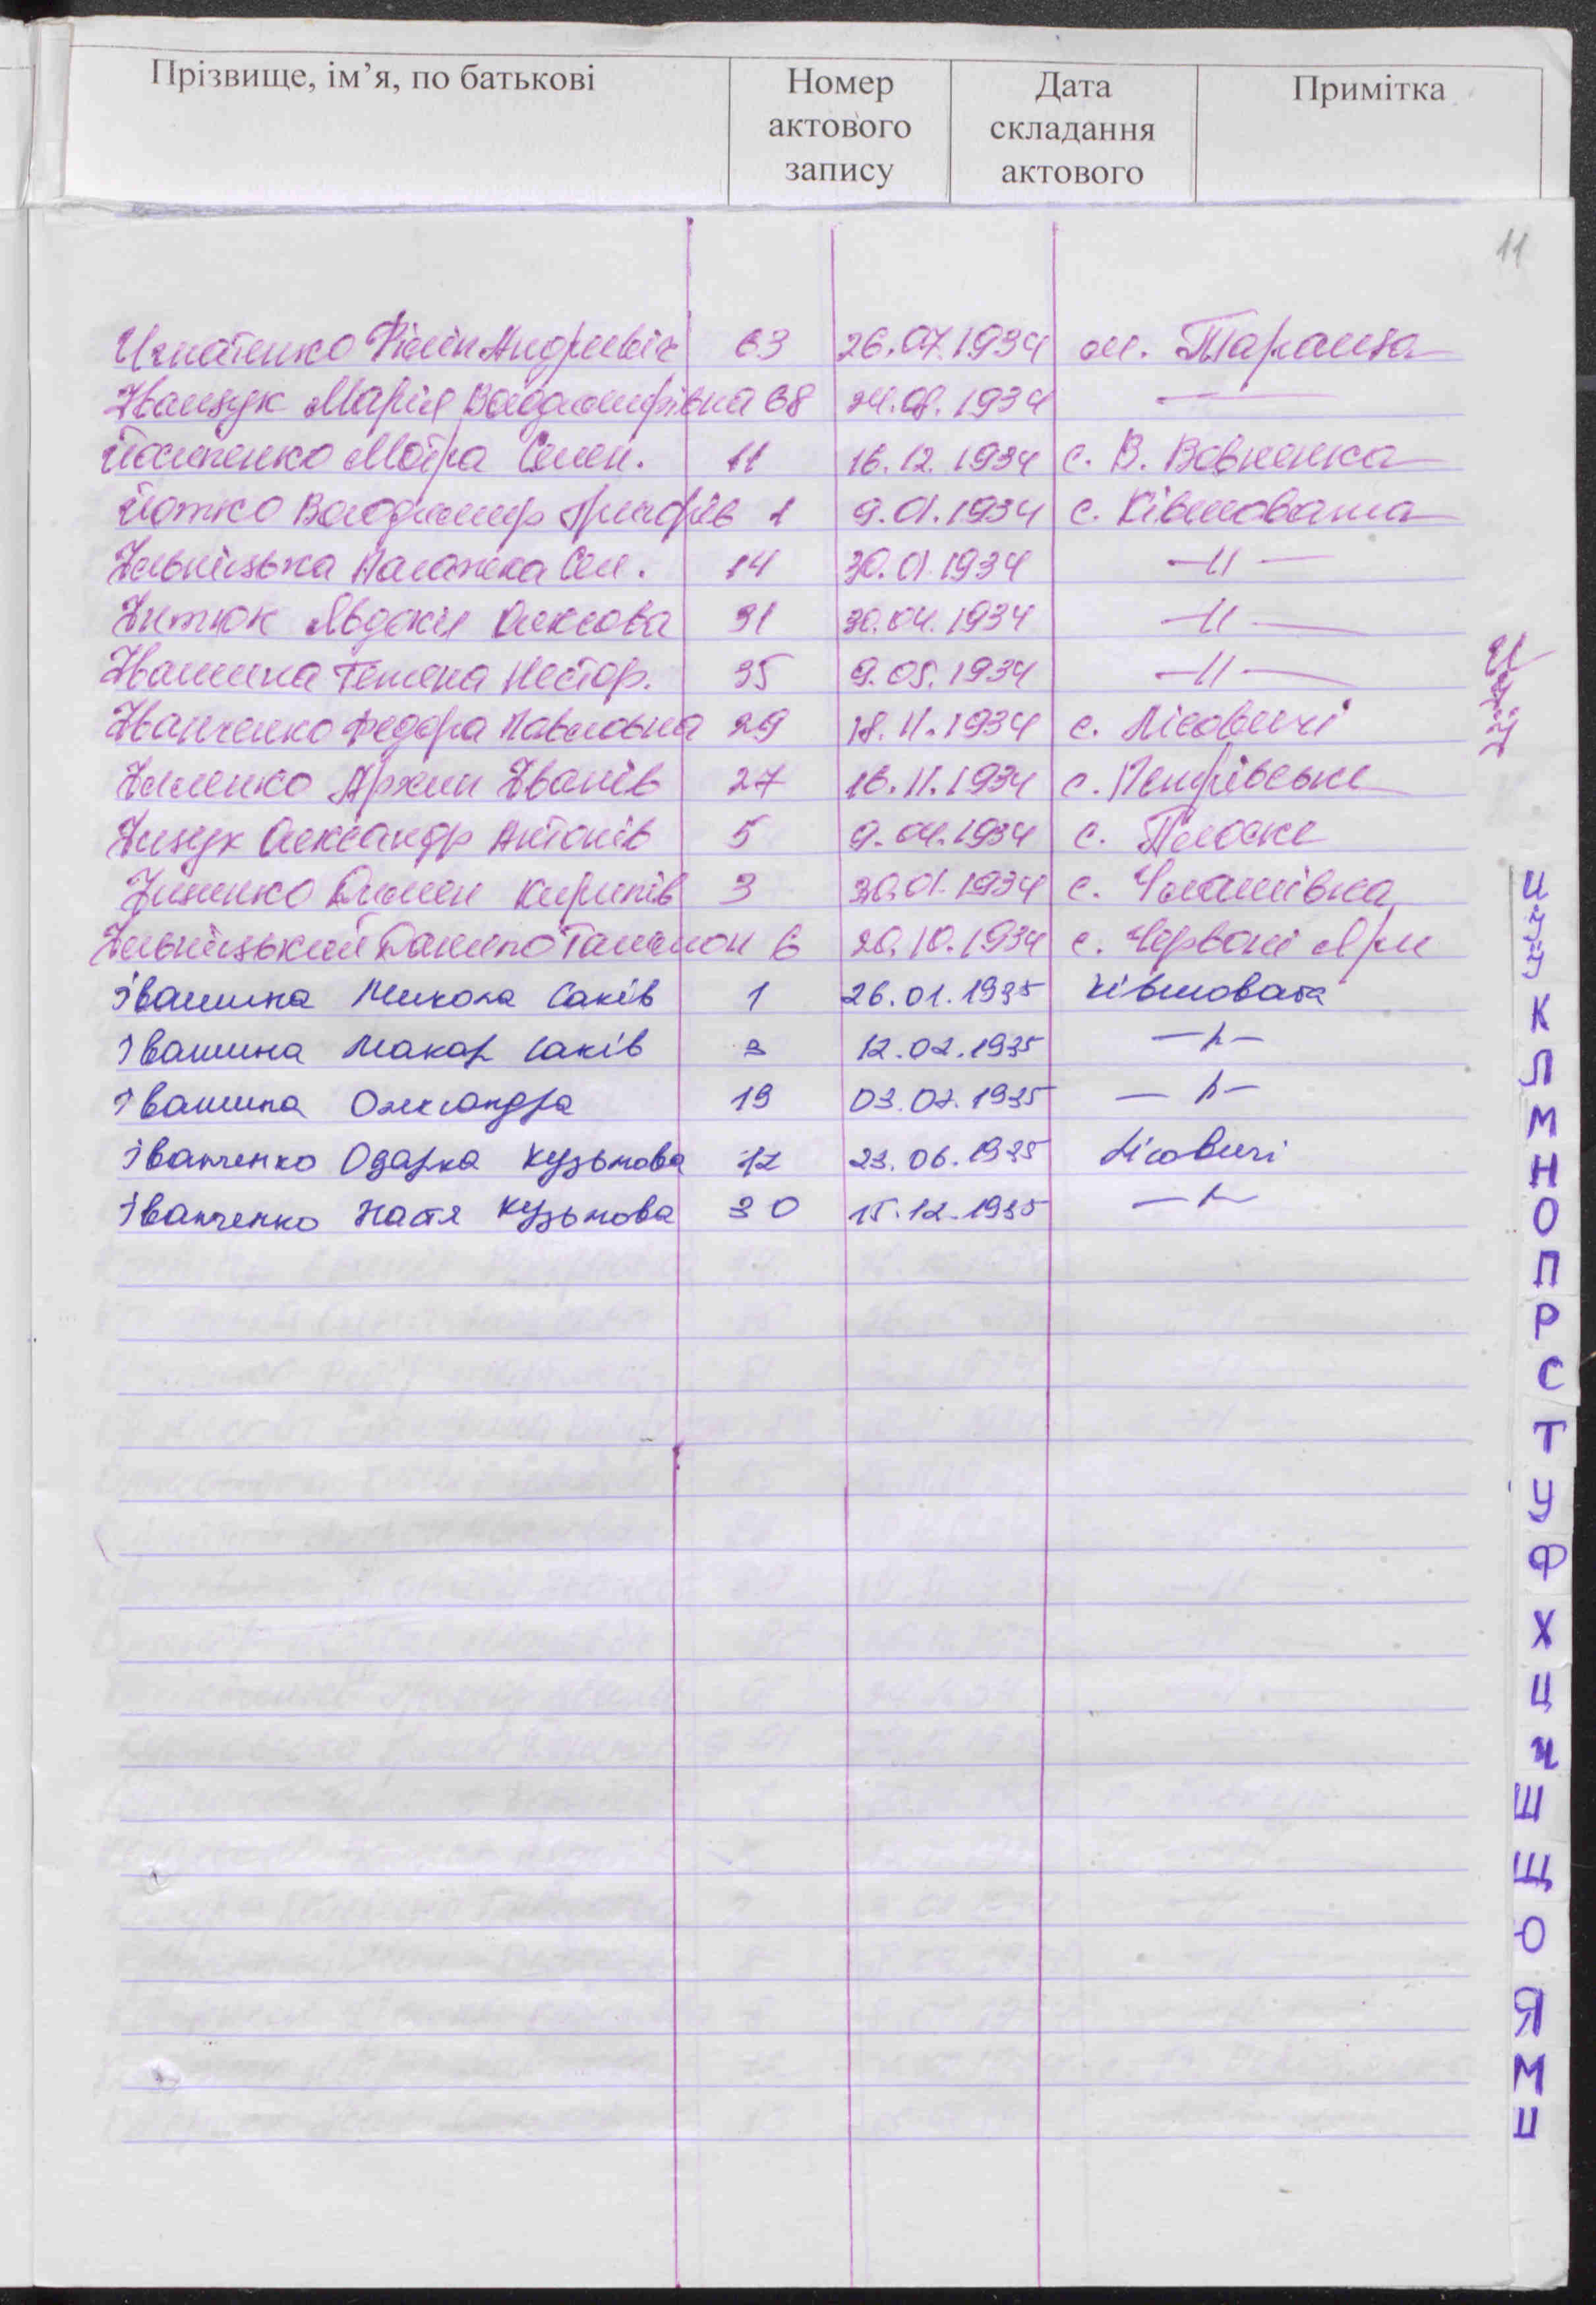 Прізвище, ім’я, по батькові Номер актового запису Дата складання актового Примітка
11
Игнатенко Філіп Андриевіч 63 26.07.1934 м. Тараща
Іванзук Марія Володимирівна 68 24.08.1934 —
Йосипенко Мотра Семен. 11 16.12.1934 с. В. Вовнянка
Йотко Володимир Григорів 1 9.01.1934 с. Ківшовата
Ільніцька Палажка Сем. 14 30.01.1934 —11—
Ілтюк Явдокія Олексова 31 30.04.1934 —11—
Івашина Тетяна Нестор. 35 9.05.1934 —11—
Іванченко Федора Павловна 29 18.11.1934 с. Лісовичі
Іллєнко Архип Іванів 27 16.11.1934 с. Петрівське
Іщук Олександр Антонів 5 9.04.1934 с. Плоске
Іщенко Кирилів 3 30.01.1934 с. Чмашівка
Ільніцький Данило 6 20.10.1934 с. Червоні Яри
Івашина Микола Саків 1 26.01.1935 Ківшовата
Івашина Макар Саків 3 12.02.1935 —"—
Івашина Олександра 19 03.07.1935 —"—
Іванченко Одарка Кузьмова 12 23.06.1935 Лісовичі
Іванченко Настя Кузьмова 30 15.12.1935 —"—
И
І
Ї
И
І
Й
К
Л
М
Н
О
П
Р
С
Т
У
Ф
Х
Ц
Ч
Ш
Щ
Ю
Я
М
Ц